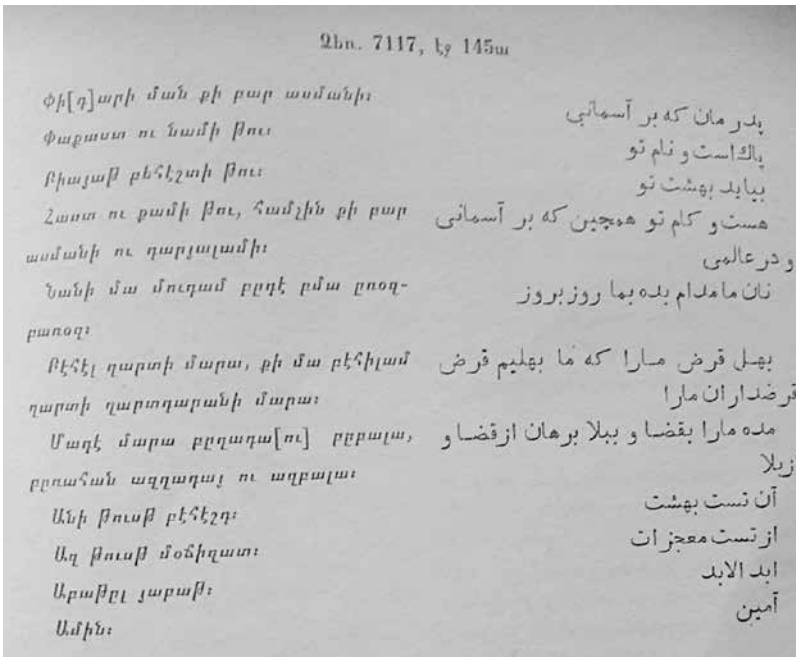 Ձեռ. 7117, էջ 145ա
Փի[դ]արի ման քի բար ասմանի։
Փաքաստ ու նամի թու։
Բիայաթ բեհէշտի թու։
Հաստ ու քամի թու, համչին քի բար
ասմանի ու դարյալամի։
Նանի մա մուդամ բըդէ բմա ըռօզ-
բառօզ։
Բէհէլ ղարտի մարա, քի մա բէհիլամ
ղարտի ղարտդարանի մարա։
Մադէ մարա բըղադա[ու] բըբալա,
բըռահան ազղադայ ու ազբալա։
Անի թուսթ բէհէշդ։
Ազ թուսթ մօճիզատ։
Աբաթըլ յաբաթ։
Ամին։
پدر مان که بر آسمانی
پاك است و نام تو
بیاید بهشت تو
هست و کام تو همچین که بر آسمانی
و در عالمی
نان ما مدام بده بما روز بروز
بهل قرض مارا که ما بهلیم قرض
قرضداران مارا
مده مارا بقضا و ببلا برهان ازقضا و
زبلا
آن تست بهشت
از تست معجزات
ابد الابد
آمین